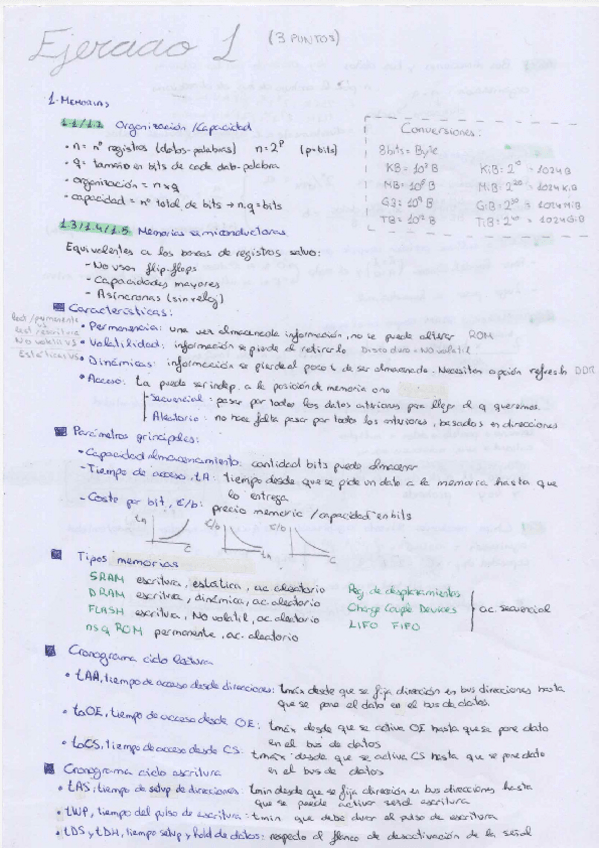 Ejercicio 1 (3 PUNTOS)
1-MEMORIAS
1.1/1.2 Organización/Capacidad
• n = nº registros (datos-palabras) n=2^p (p=bits)
• q = tamaño en bits de cada dato-palabra
• organización = n x q
• capacidad = nº total de bits → n.q = bits
Conversiones:
8bits = Byte
KB = 10³ B KiB: 2^10 = 1024 B
MB = 10⁶ B MiB: 2^20 = 1024 KiB
GB = 10⁹ B GiB: 2^30 = 1024 MiB
TB = 10^12 B TiB: 2^40 = 1024 GiB
1.3/1.4/1.5 Memorias semiconductoras
Equivalentes a los bancos de registros salvo:
- No usan flip-flops
- Capacidades mayores
- Asíncronas (sin reloj)
Características:
lect/permanente
vs
lect/escritura
No volatil vs
Estáticas vs
• Permanencia: una vez almacenada información, no se puede alterar ROM
• Volatilidad: información se pierde al retirarlo Disco duro = NO volatil
• Dinámicas: información se pierde al poco t de ser almacenada. Necesitan opción refresh DDR
• Acceso: ta puede ser indep. a la posición de memoria o no
- Secuencial = pasar por todos los datos anteriores para llegar al q queremos.
Aleatorio: no hace falta pasar por todos los anteriores, basados en direcciones
Parámetros principales:
- Capacidad almacenamiento: cantidad bits puede almacenar
- Tiempo de acceso, tA: tiempo desde que se pide un dato a la memoria hasta que
lo entrega
- Coste por bit, €/b: precio memoria/capacidad en bits
tA €/b €/b
C tA C
Tipos memorias
SRAM escritura, estática, ac. aleatorio
DRAM escritura, dinámica, ac. aleatorio
FLASH escritura, NO volatil, ac. aleatorio
ROM permanente, ac. aleatorio
Reg. de desplazamientos
Charge Couple Devices ac. secuencial
LIFO FIFO
Cronograma ciclo lectura
• tAA, tiempo de acceso desde direcciones: tmáx desde que se fija dirección en bus direcciones hasta
que se pone el dato en el bus de datos.
• taOE, tiempo de acceso desde OE: tmáx desde que se activa OE hasta que se pone dato
en el bus de datos
• taCS, tiempo de acceso desde CS: tmáx desde que se activa CS hasta que se pone dato
en el bus de datos
Cronograma ciclo escritura
• tAS, tiempo de setup de direcciones: tmin desde que se fija dirección en bus direcciones hasta
que se puede activar señal escritura
• tWP, tiempo del pulso de escritura: tmin que debe durar el pulso de escritura
• tDS y tDH, tiempo setup y hold de datos: respecto al flanco de desactivación de la señal